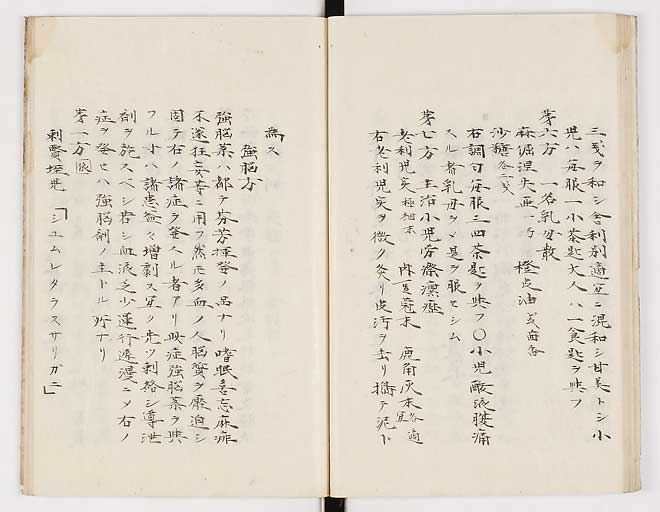 三戔ヲ和シ舎利別適宜ニ混和シ甘美トシ小
児ハ毎服一小茶匙大人ハ一食匙ヲ與フ
第六方　一名乳母散
麻倔涅失亜一弓　橙皮油　茴香
沙糖各二戔
右調匀毎服三四茶匙ヲ與フ〇小児酸液腹痛
スル者乳母ヲメ是ヲ服セシム
第七方　主治小児労瘵瘰癧
老利児実極細末　肉豆蔲末　鹿角灰末各適宜
右老利児実ヲ微ク炙リ皮汚ヲ去リ擣テ泥ト
為ス
強脳方
強脳薬ハ都テ芬芳揮發ノ品ナリ嗜眠喜忘麻痺
不遂狂妄等ニ用フ然モ多血ノ人脳質ヲ壓迫シ
因テ右ノ諸症ヲ發スル者アリ此症強脳薬ヲ與
フル寸ハ諸患益々増劇ス宜ク先ツ刺絡シ導泄
剤ヲ施スベシ若シ血液乏少運行遅漫ニメ右ノ
症ヲ發セハ強脳剤ノ主トル所ナリ
第一方
刺賢垤児「ジユムレタラスサリガニ」